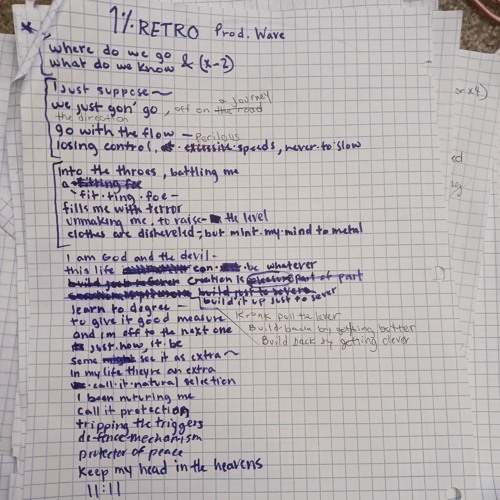 1% RETRO Prod. Wave
where do we go
what do we know & (x-2)
I just suppose~
a journey
we just gon' go, off on the road
the direction
go with the flow - Perilous
losing control, at excessive speeds, never to slow
into the throes, battling me
a fitting foe
fit·ting foe-
fills me with terror
unmaking me, to raise the level
clothes are disheveled; but mint my mind to metal
I am God and the devil-
this life can be whatever
creation is pleasure part of part
build just to sever
build it up just to sever
learn to degree
to give it good measure
Kronk pull the lever
and im off to the next one
Build back by getting better
just how, it be
Build back by getting clever
some might see it as extra~
In my life they're an extra
call it natural selection
I been nurturing me
call it protection
tripping the triggers
defence mechanism
protector of peace
keep my head in the heavens
11:11
or x4)